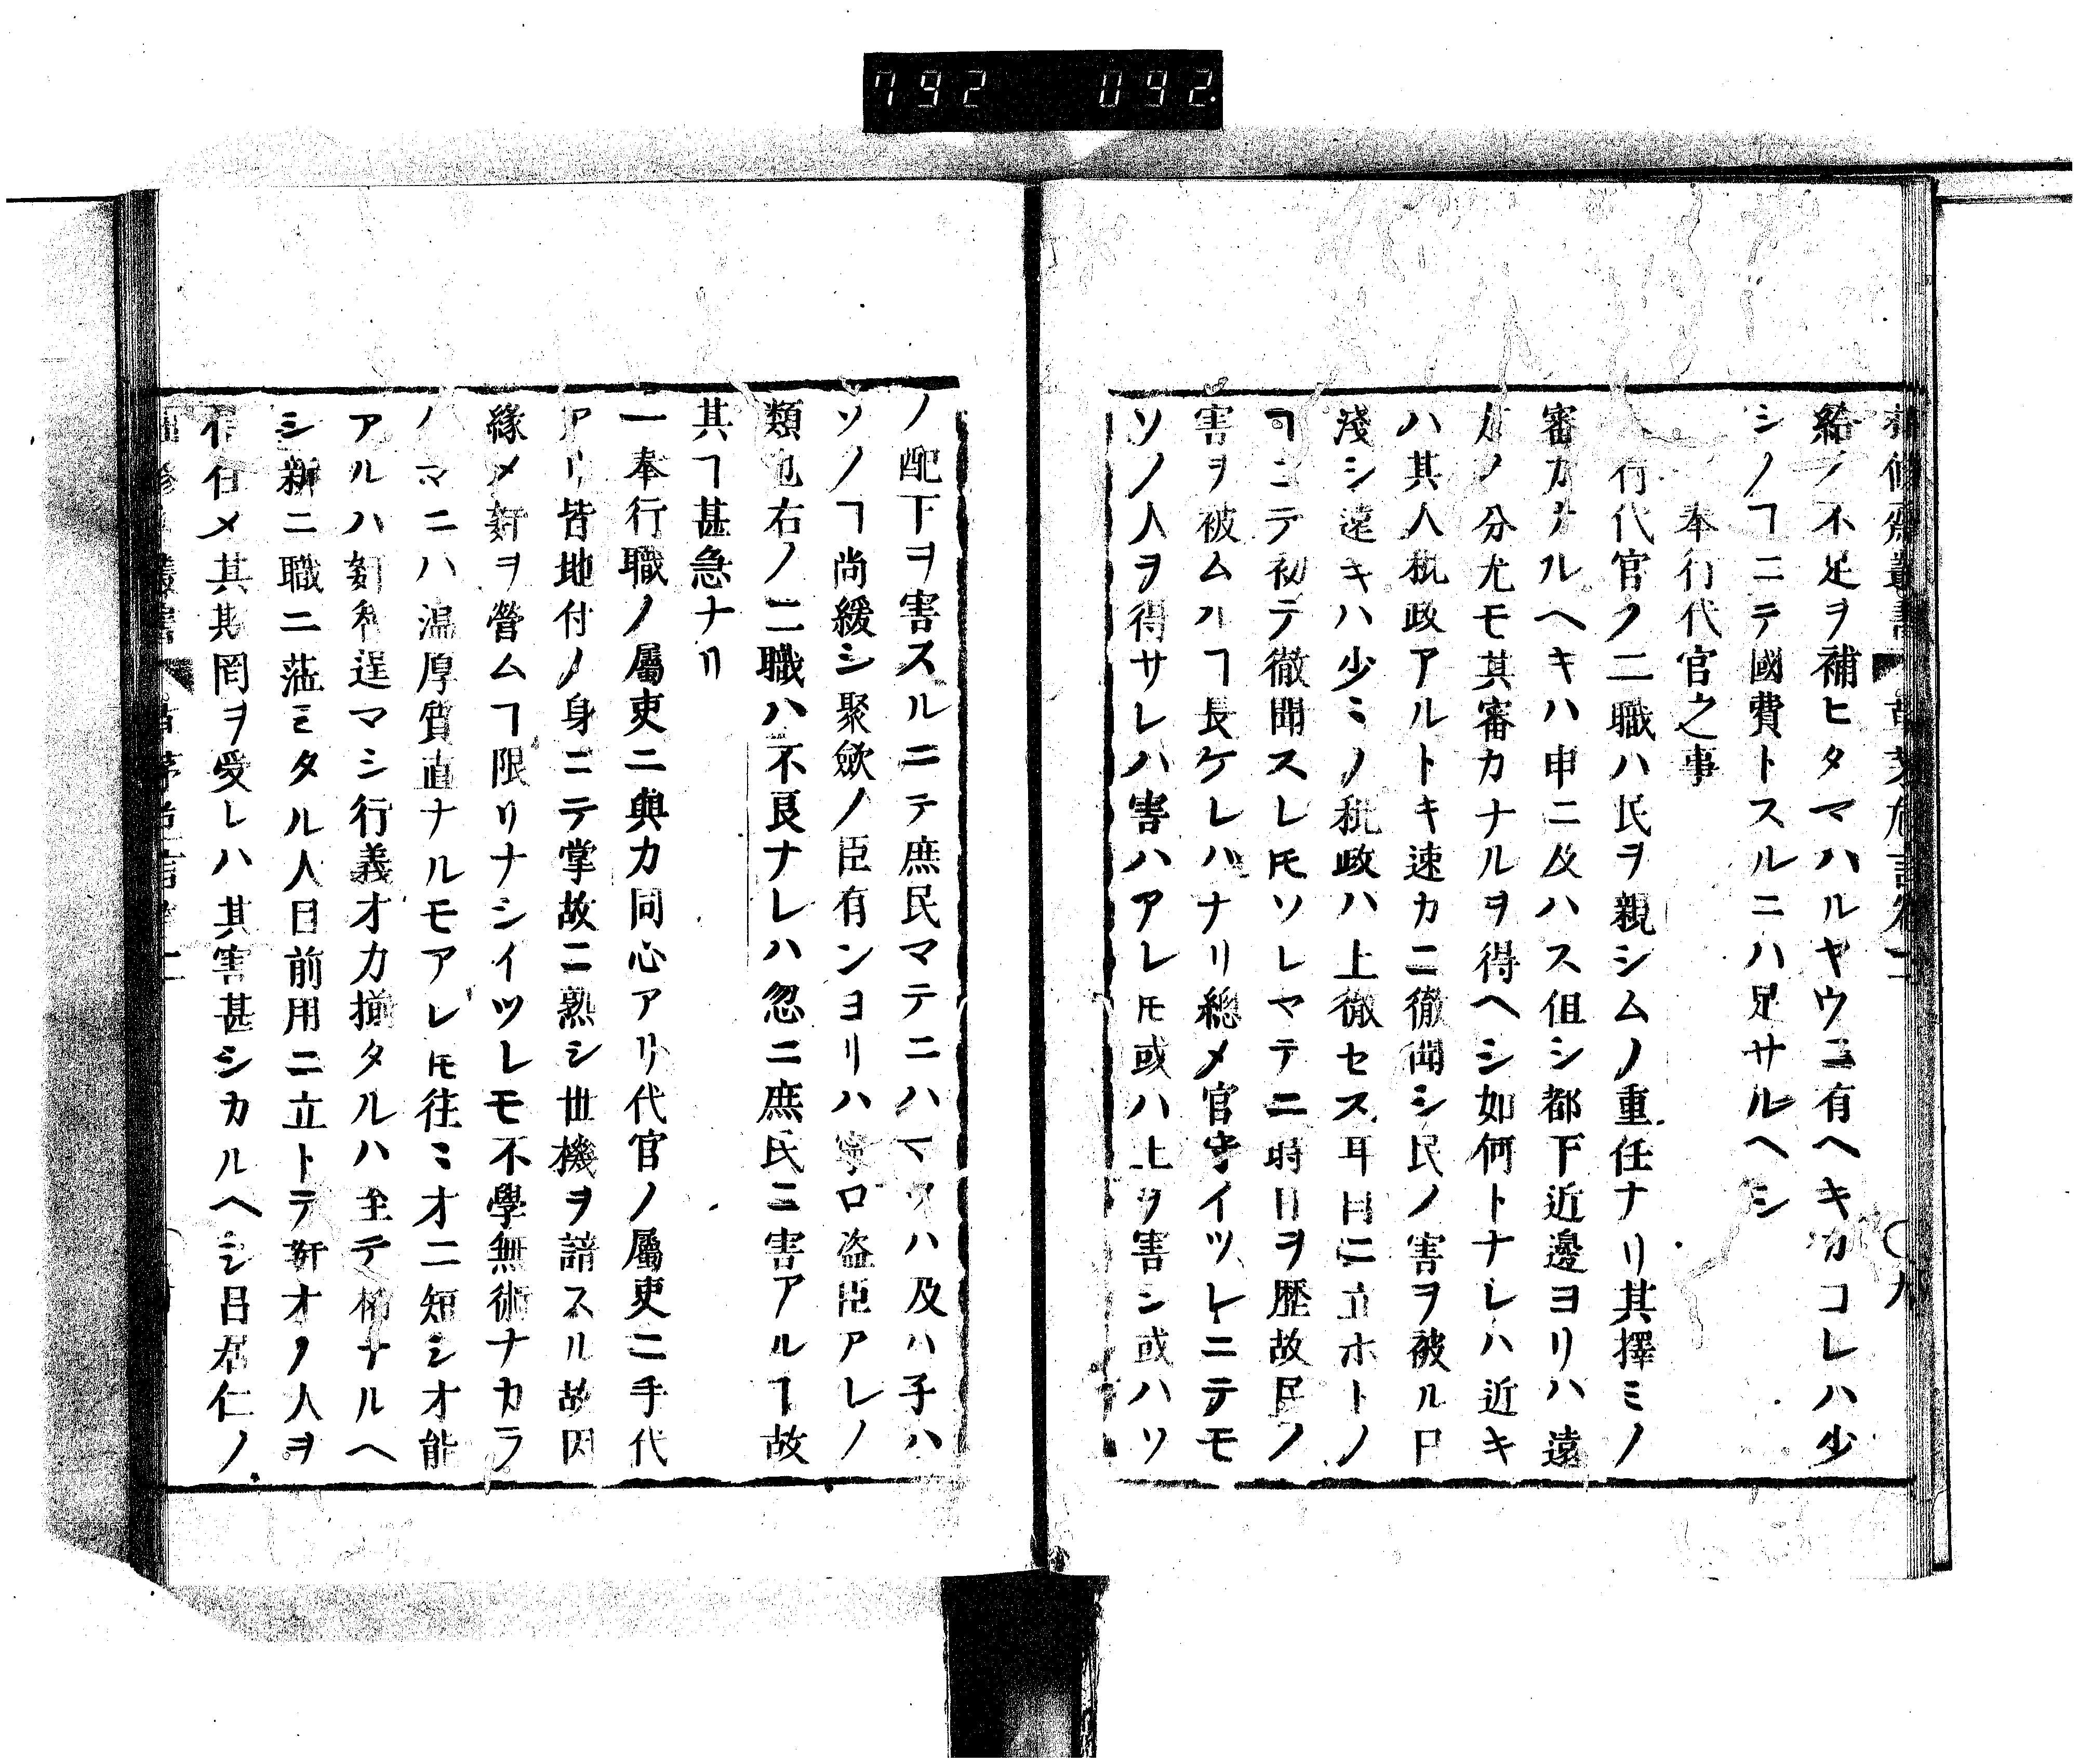 792 092
給ノ不足ヲ補ヒタマハルヤウニ有ヘキカコレハ少
シノヿニテ國費トスルニハ足サルヘシ
奉行代官之事
行代官ノ二職ハ民ヲ親シムノ重任ナリ其擇ミノ
審カナルヘキハ申ニ及ハス伹シ都下近邊ヨリハ遠
方ノ分尤モ其審カナルヲ得ヘシ如何トナレハ近キ
ハ其人秕政アルトキ速カニ徹聞シ民ノ害ヲ被ル日
淺シ遠キハ少ミノ秕政ハ上徹セス耳目ニ立ホトノ
ヿニテ初テ徹聞スレ𪜈ソレマテニ時日ヲ歴故民ノ
害ヲ被ムルヿ長ケレバナリ總メ官守イツレニテモ
ソノ人ヲ得サレハ害ハアレ𪜈或ハ上ヲ害シ或ハソ
ノ配下ヲ害スルニテ庶民マテニハマツハ及ハ子ハ
ソノヿ尚緩シ聚歛ノ臣有ンヨリハ寧ロ盗臣アレノ
類也右ノ二職ハ不良ナレハ忽ニ庶民ニ害アルヿ故
其ヿ甚急ナリ
一奉行職ノ屬吏ニ與力同心アリ代官ノ屬吏ニ手代
アリ皆地付ノ身ニテ掌故ニ熟シ世機ヲ諳スル故因
緣メ姧ヲ營ムヿ限リナシイツレモ不學無術ナカラ
ノマニハ溫厚質直ナルモアレ𪜈往ミオニ短シオ能
アルハ姧智逞マシ行義オカ揃タルハ至テ稀ナルヘ
シ新ニ職ニ莅ミタル人目前用ニ立トテ姧オノ人ヲ
信任メ其欺罔ヲ受レハ其害甚シカルヘシ呂居仁ノ